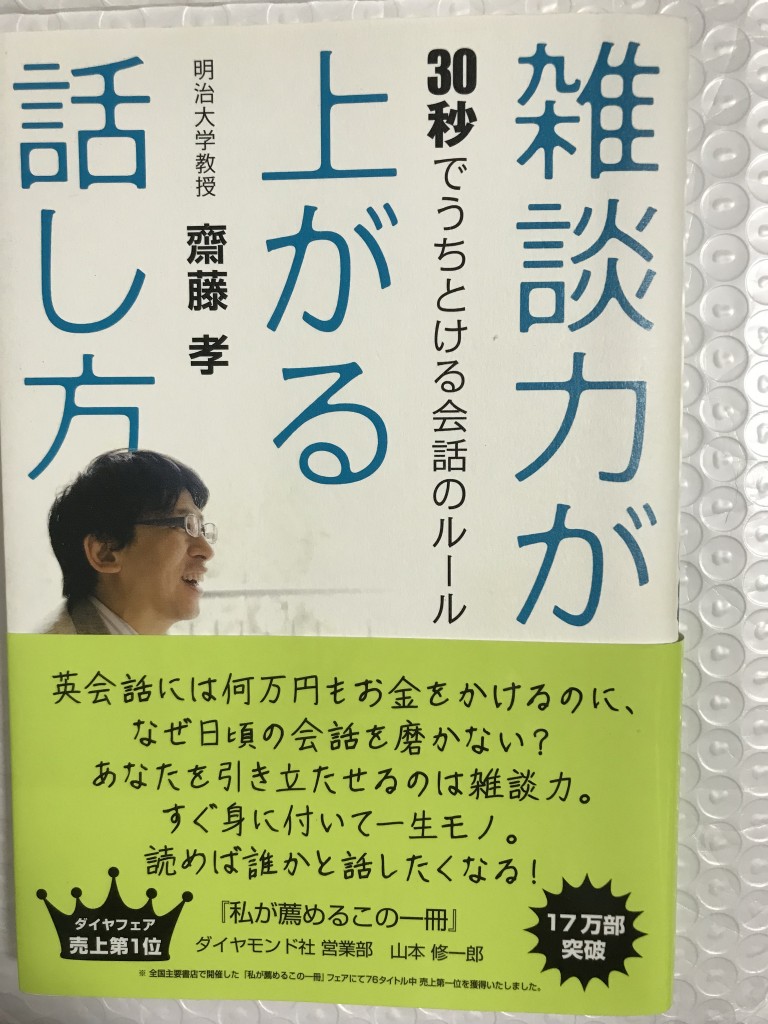 雑談力が
上がる
話し方
30秒でうちとける会話のルール
明治大学教授 齋藤 孝
英会話には何万円もお金をかけるのに、
なぜ日頃の会話を磨かない?
あなたを引き立たせるのは雑談力。
すぐ身に付いて一生モノ。
読めば誰かと話したくなる!
ダイヤフェア
売上第1位
『私が薦めるこの一冊』
ダイヤモンド社 営業部 山本 修一郎
17万部
突破
※ 全国主要書店で開催した「私が薦めるこの一冊」フェアにて76タイトル中 売上第一位を獲得いたしました。